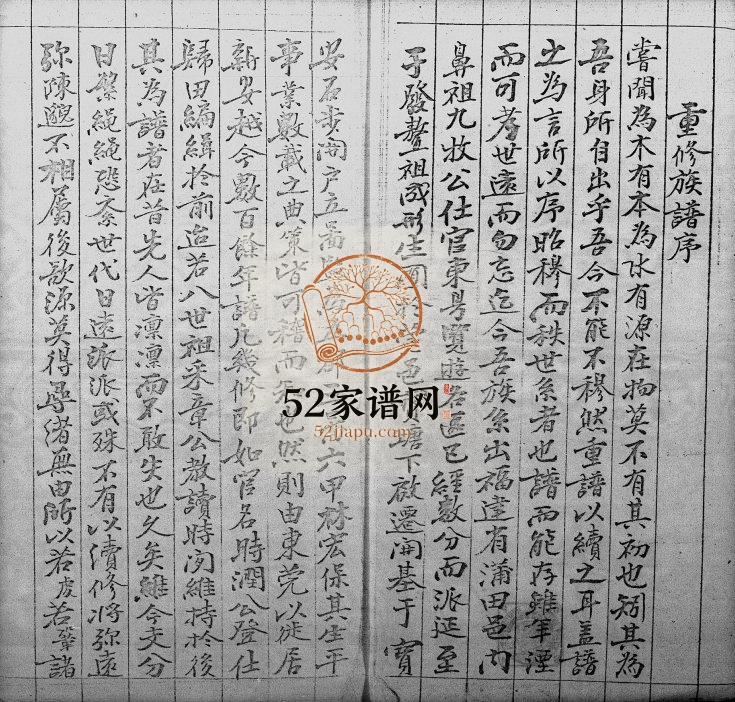 重修族譜序
嘗聞為木有本為水有源在物莫不有其初也矧其為
吾身所自出乎吾今不能不穆然重譜以續之耳蓋譜
之為言所以序昭穆而秩世系者也譜而能存雖年湮
而可考世遠而勿忘迄今吾族系出福建有蒲田邑內
鼻祖九牧公仕官東粵寶遊名區已經數分而派延至
于發鰲祖成形生 邑 塘下啟遷開基于寶
安石步開戶立 六甲林宏保其生平
事業數載之典策皆可稽而 也然則由東莞以徙居
新安越今數百餘年譜凡幾修即如官名時潤公登仕
歸田編緝於前迨若八世祖采章公教讀時閔維持於後
其為譜者在昔先人皆凜凜而不敢失也久矣雖今支分
日繁繩繩恐紊世代日遠派派或殊不有以續修將弥遠
弥陳邈不相屬後欲源莫得尋緒無由所以若度若肇諸
52家谱网
52jiapu.com